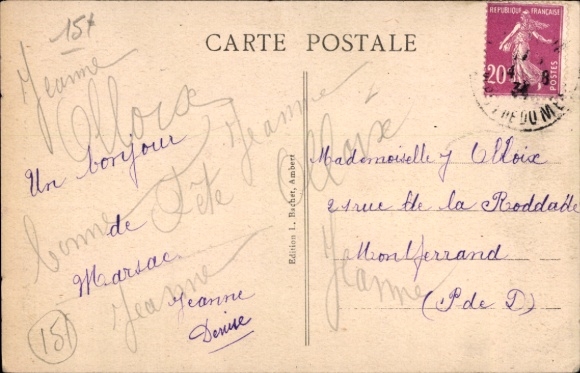 15t
CARTE POSTALE
REPUBLIQUE FRANÇAISE
20c
POSTES
Jeanne
Olloix
Jeanne
Olloix
Un bonjour
de
Marsac
Jeanne
Denise
bonne Fête
Jeanne
Jeanne
151
Edition L. Bachet, Ambert
Mademoiselle J Olloix
rue de la Rodade
Montferrand
(P. de D)